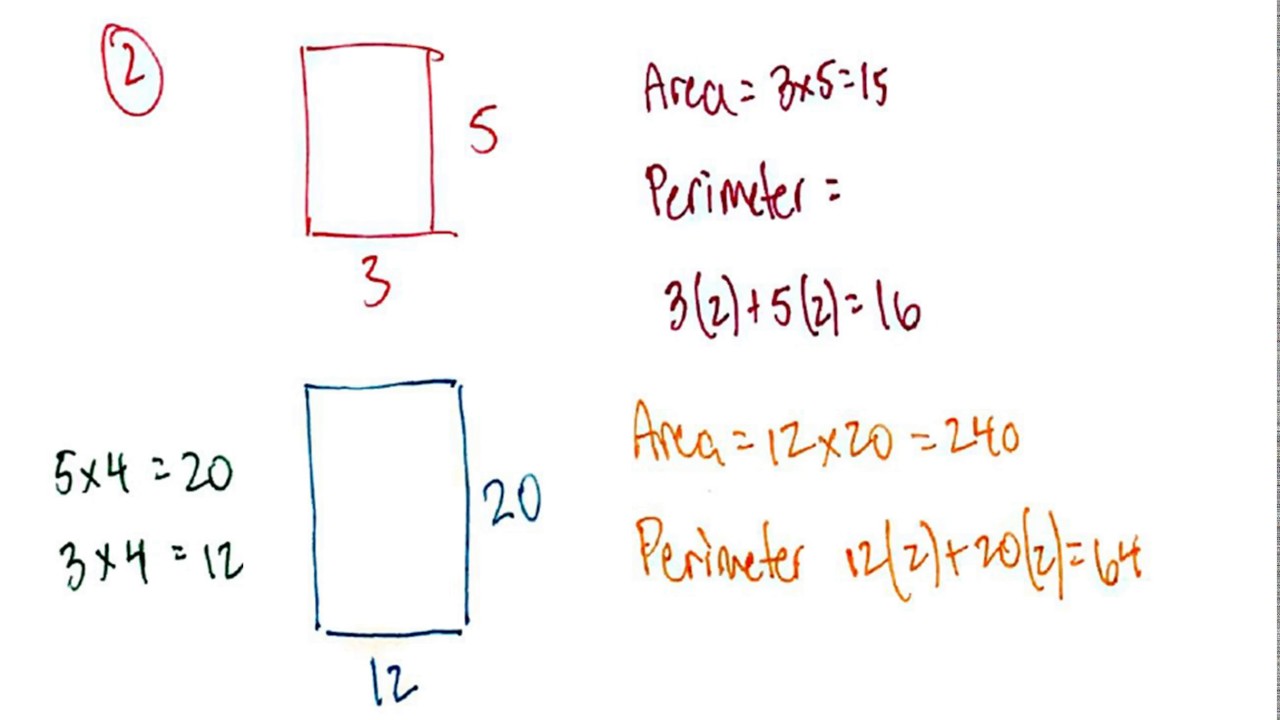 2
5
3
Area = 3x5=15
Perimeter =
3(2)+5(2)=16
5x4 = 20
3x4 = 12
20
12
Area = 12x20 = 240
Perimeter 12(2)+20(2)=64